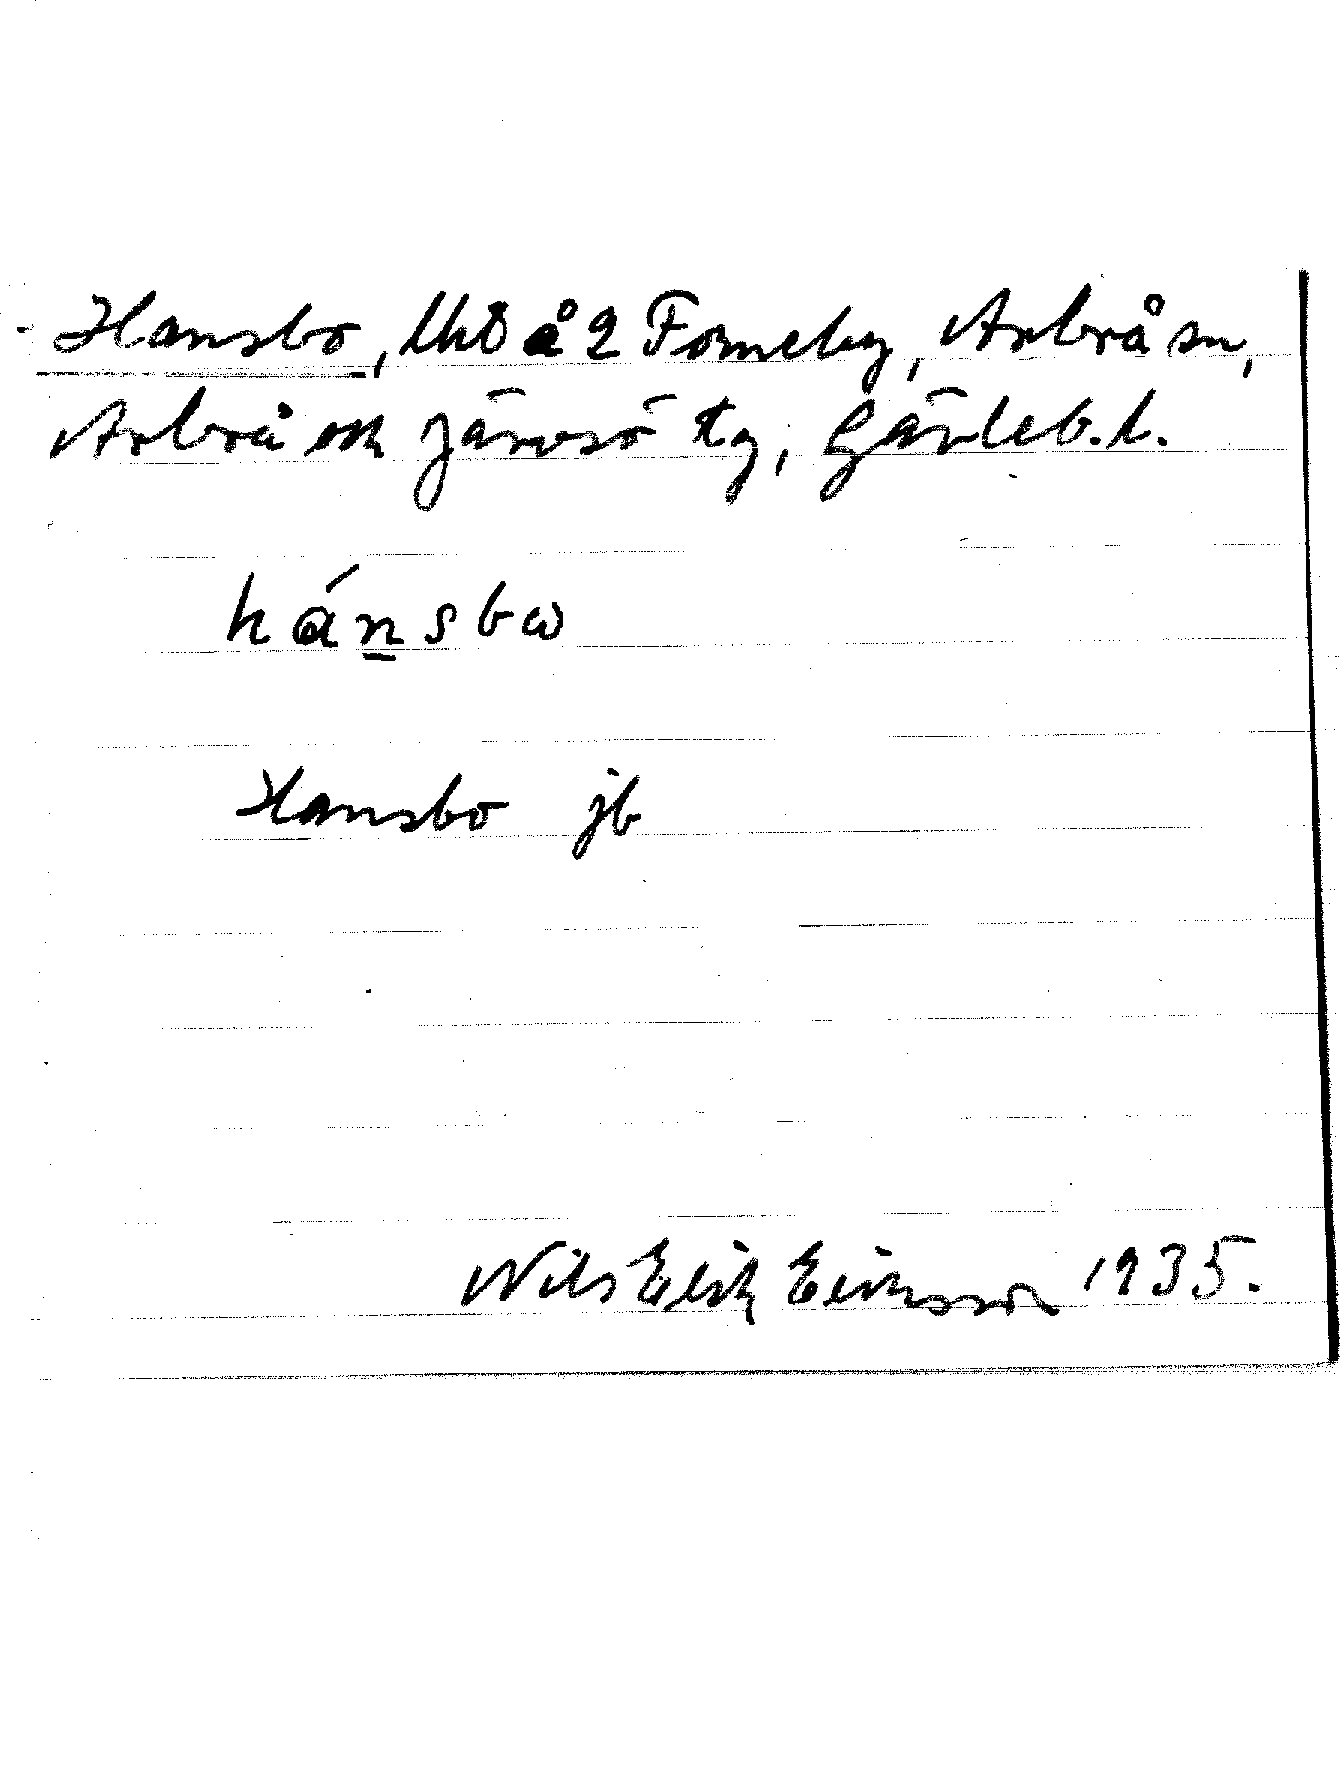 Hansbo, lhd å 2 Forneby, Arbrå sn,
Arbrå och Järvsö tg, Gävleb. l.
hánsbω
Hansbo jb
Nils Erik Eriksson 1935.